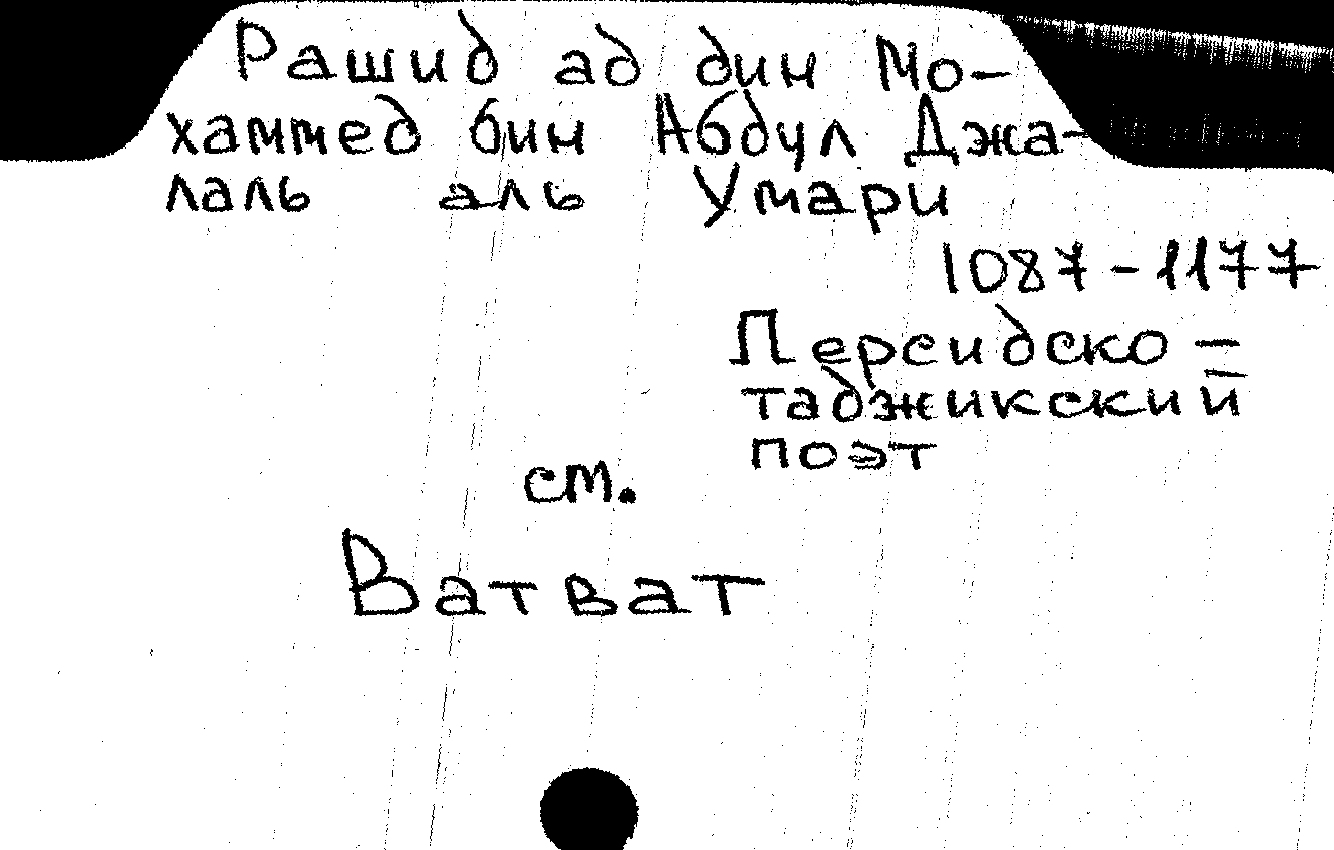 Рашид ад дин Мо-
хаммед бин Абдул Джа-
лаль аль Умари
1087 - 1177
Персидско -
таджикский
поэт
см.
Ватват